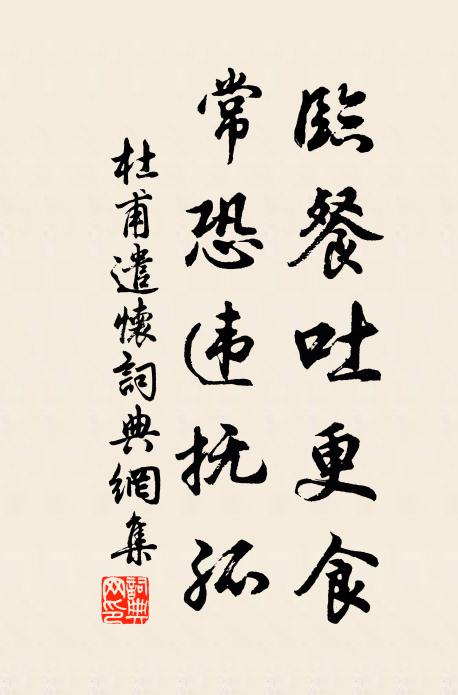 臨餐吐更食
常恐违抚孤
杜甫遣懷詞典網集
詞典网印